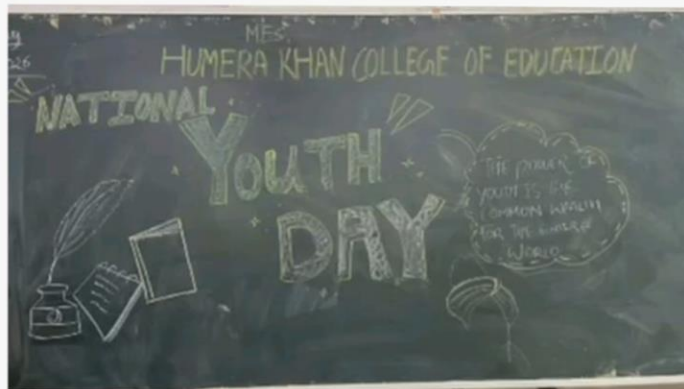 MES.
HUMERA KHAN COLLEGE OF EDUCATION
26
NATIONAL
YOUTH
DAY
THE POWER OF
YOUTH IS THE
COMMON WEALTH
FOR THE ENTIRE
WORLD